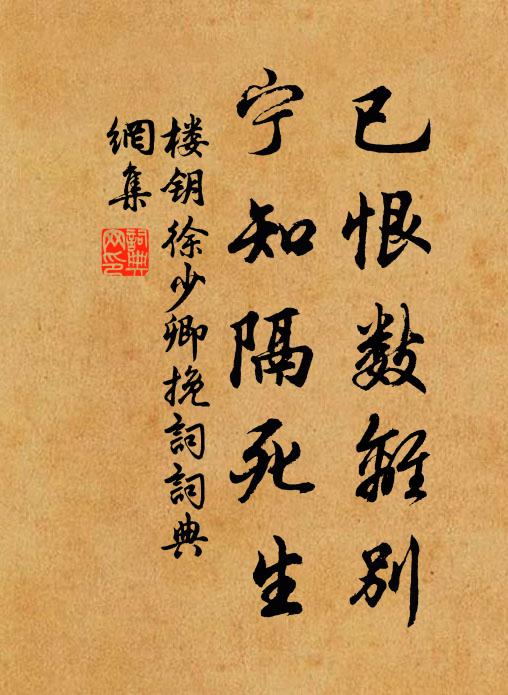 已恨数離别
宁知隔死生
楼钥徐少卿挽詞詞典
網集
詞典網印